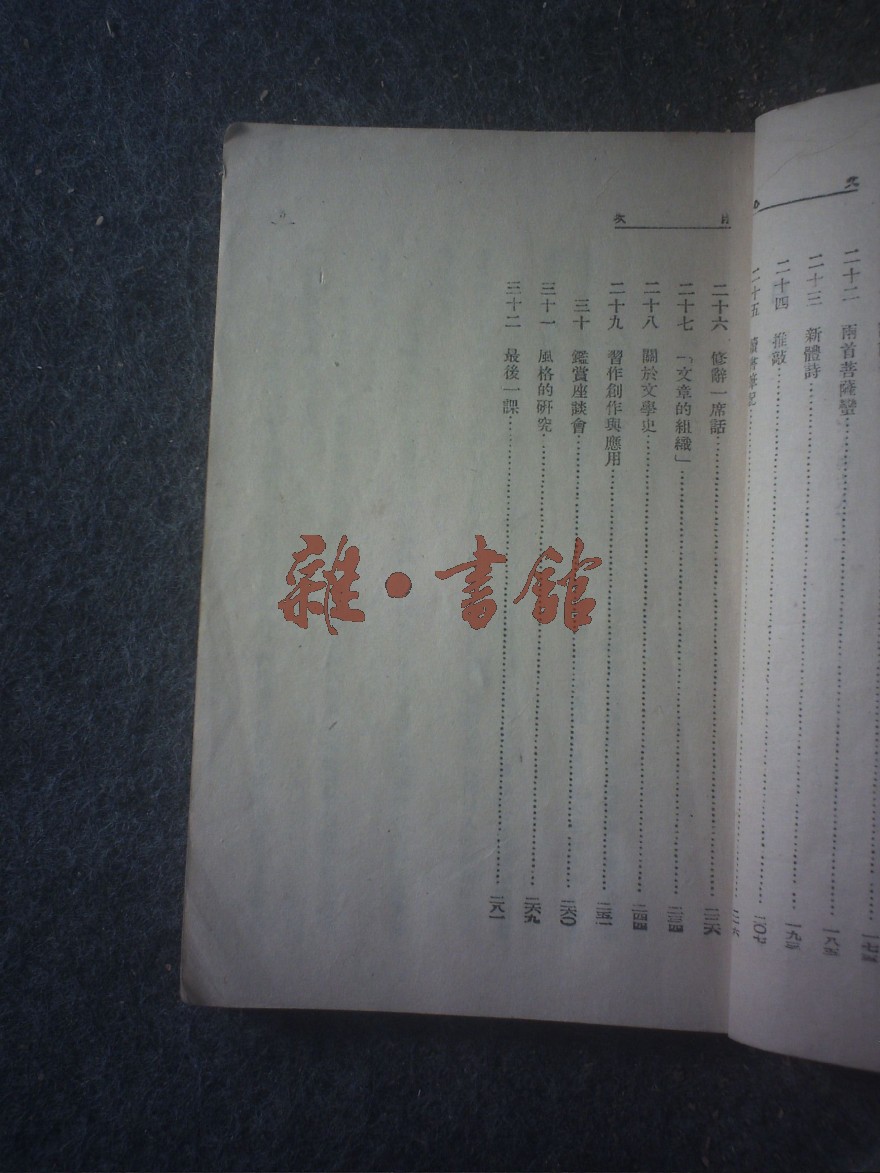 文
二十二 兩首菩薩蠻 一八五
二十三 新體詩 一九五
二十四 推敲 二〇七
二十五 讀書筆記 二一六
目 次
二十六 修辭一席話 二二六
二十七 「文章的組織」 二三四
二十八 關於文學史 二四四
二十九 習作創作與應用 二五一
三十 鑑賞座談會 二六〇
三十一 風格的研究 二六九
三十二 最後一課 二八一
雜·書館